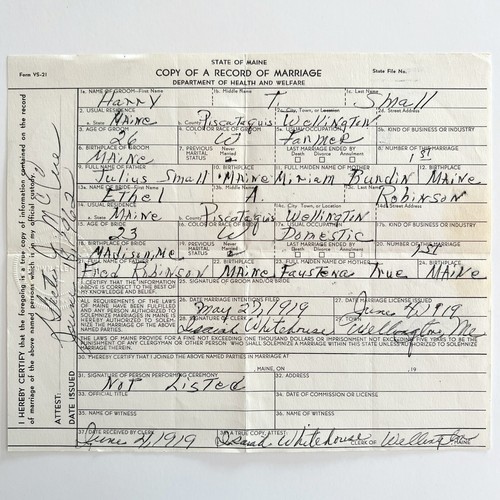 STATE OF MAINE
Form VS-21 COPY OF A RECORD OF MARRIAGE State File No.
DEPARTMENT OF HEALTH AND WELFARE
1a. NAME OF GROOM—First Name 1b. Middle Name 1c. Last Name
Harry T. Small
2. USUAL RESIDENCE 2c. City, Town, or Location 2d. Street Address
a. State MAINE b. County Piscataquis Wellington
3. AGE OF GROOM 5a. USUAL OCCUPATION 5b. KIND OF BUSINESS OR INDUSTRY
26 W Farmer
6. BIRTHPLACE OF GROOM 7. PREVIOUS MARITAL STATUS Never Married LAST MARRIAGE ENDED BY Death Divorce Annulment NUMBER OF THIS MARRIAGE
MAINE 1st
BIRTHPLACE FULL MAIDEN NAME OF MOTHER 12. BIRTHPLACE
Julius Small MAINE Miriam MAINE
NAME OF BRIDE—First Name 13b. Middle Name 13c. Last Name
A. Robinson
USUAL RESIDENCE City, Town, or Location Street Address
a. State MAINE Piscataquis Wellington
15. AGE OF BRIDE USUAL OCCUPATION KIND OF BUSINESS OR INDUSTRY
23 W Domestic
18. BIRTHPLACE OF BRIDE PREVIOUS MARITAL STATUS Never Married LAST MARRIAGE ENDED BY Death Divorce Annulment 20. NUMBER OF THIS MARRIAGE
Madison, Me 1st
FULL MAIDEN NAME OF MOTHER BIRTHPLACE
Fred Robinson MAINE Faustena True MAINE
I CERTIFY THAT THE INFORMATION ABOVE IS CORRECT TO THE BEST OF MY KNOWLEDGE AND BELIEF. 25. SIGNATURE OF GROOM AND/OR BRIDE
ALL REQUIREMENTS OF THE LAWS OF MAINE HAVE BEEN FULFILLED AND ANY PERSON AUTHORIZED TO SOLEMNIZE MARRIAGES IN MAINE IS AUTHORIZED TO SOLEMNIZE THE MARRIAGE OF THE ABOVE NAMED PERSONS
DATE MARRIAGE INTENTIONS FILED 27. DATE MARRIAGE LICENSE ISSUED
May 27, 1919 June 4, 1919
TOWN
Isaiah Whitehouse Wellington, Me
THE LAWS OF MAINE PROVIDE FOR A FINE NOT EXCEEDING ONE THOUSAND DOLLARS OR IMPRISONMENT NOT EXCEEDING FIVE YEARS TO BE THE PUNISHMENT OF ANY CLERGYMAN OR OTHER PERSON, WHO SHALL SOLEMNIZE A MARRIAGE WITHIN THIS STATE UNLESS AUTHORIZED TO SOLEMNIZE
30. I HEREBY CERTIFY THAT I JOINED THE ABOVE NAMED PARTIES IN MARRIAGE AT
MAINE, ON , 19
31. SIGNATURE OF PERSON PERFORMING CEREMONY 32. ADDRESS
Not Listed
33. OFFICIAL TITLE 34. DATE OF COMMISSION OR LICENSE
35. NAME OF WITNESS 36. NAME OF WITNESS
37. DATE RECEIVED BY CLERK A TRUE COPY, ATTEST: CLERK OF MAINE
June 4, 1919 Isaiah Whitehouse Wellington
I HEREBY CERTIFY that the foregoing is a true copy of information contained on the record
of marriage of the above named persons which is in my official custody.
ATTEST:
DATE ISSUED